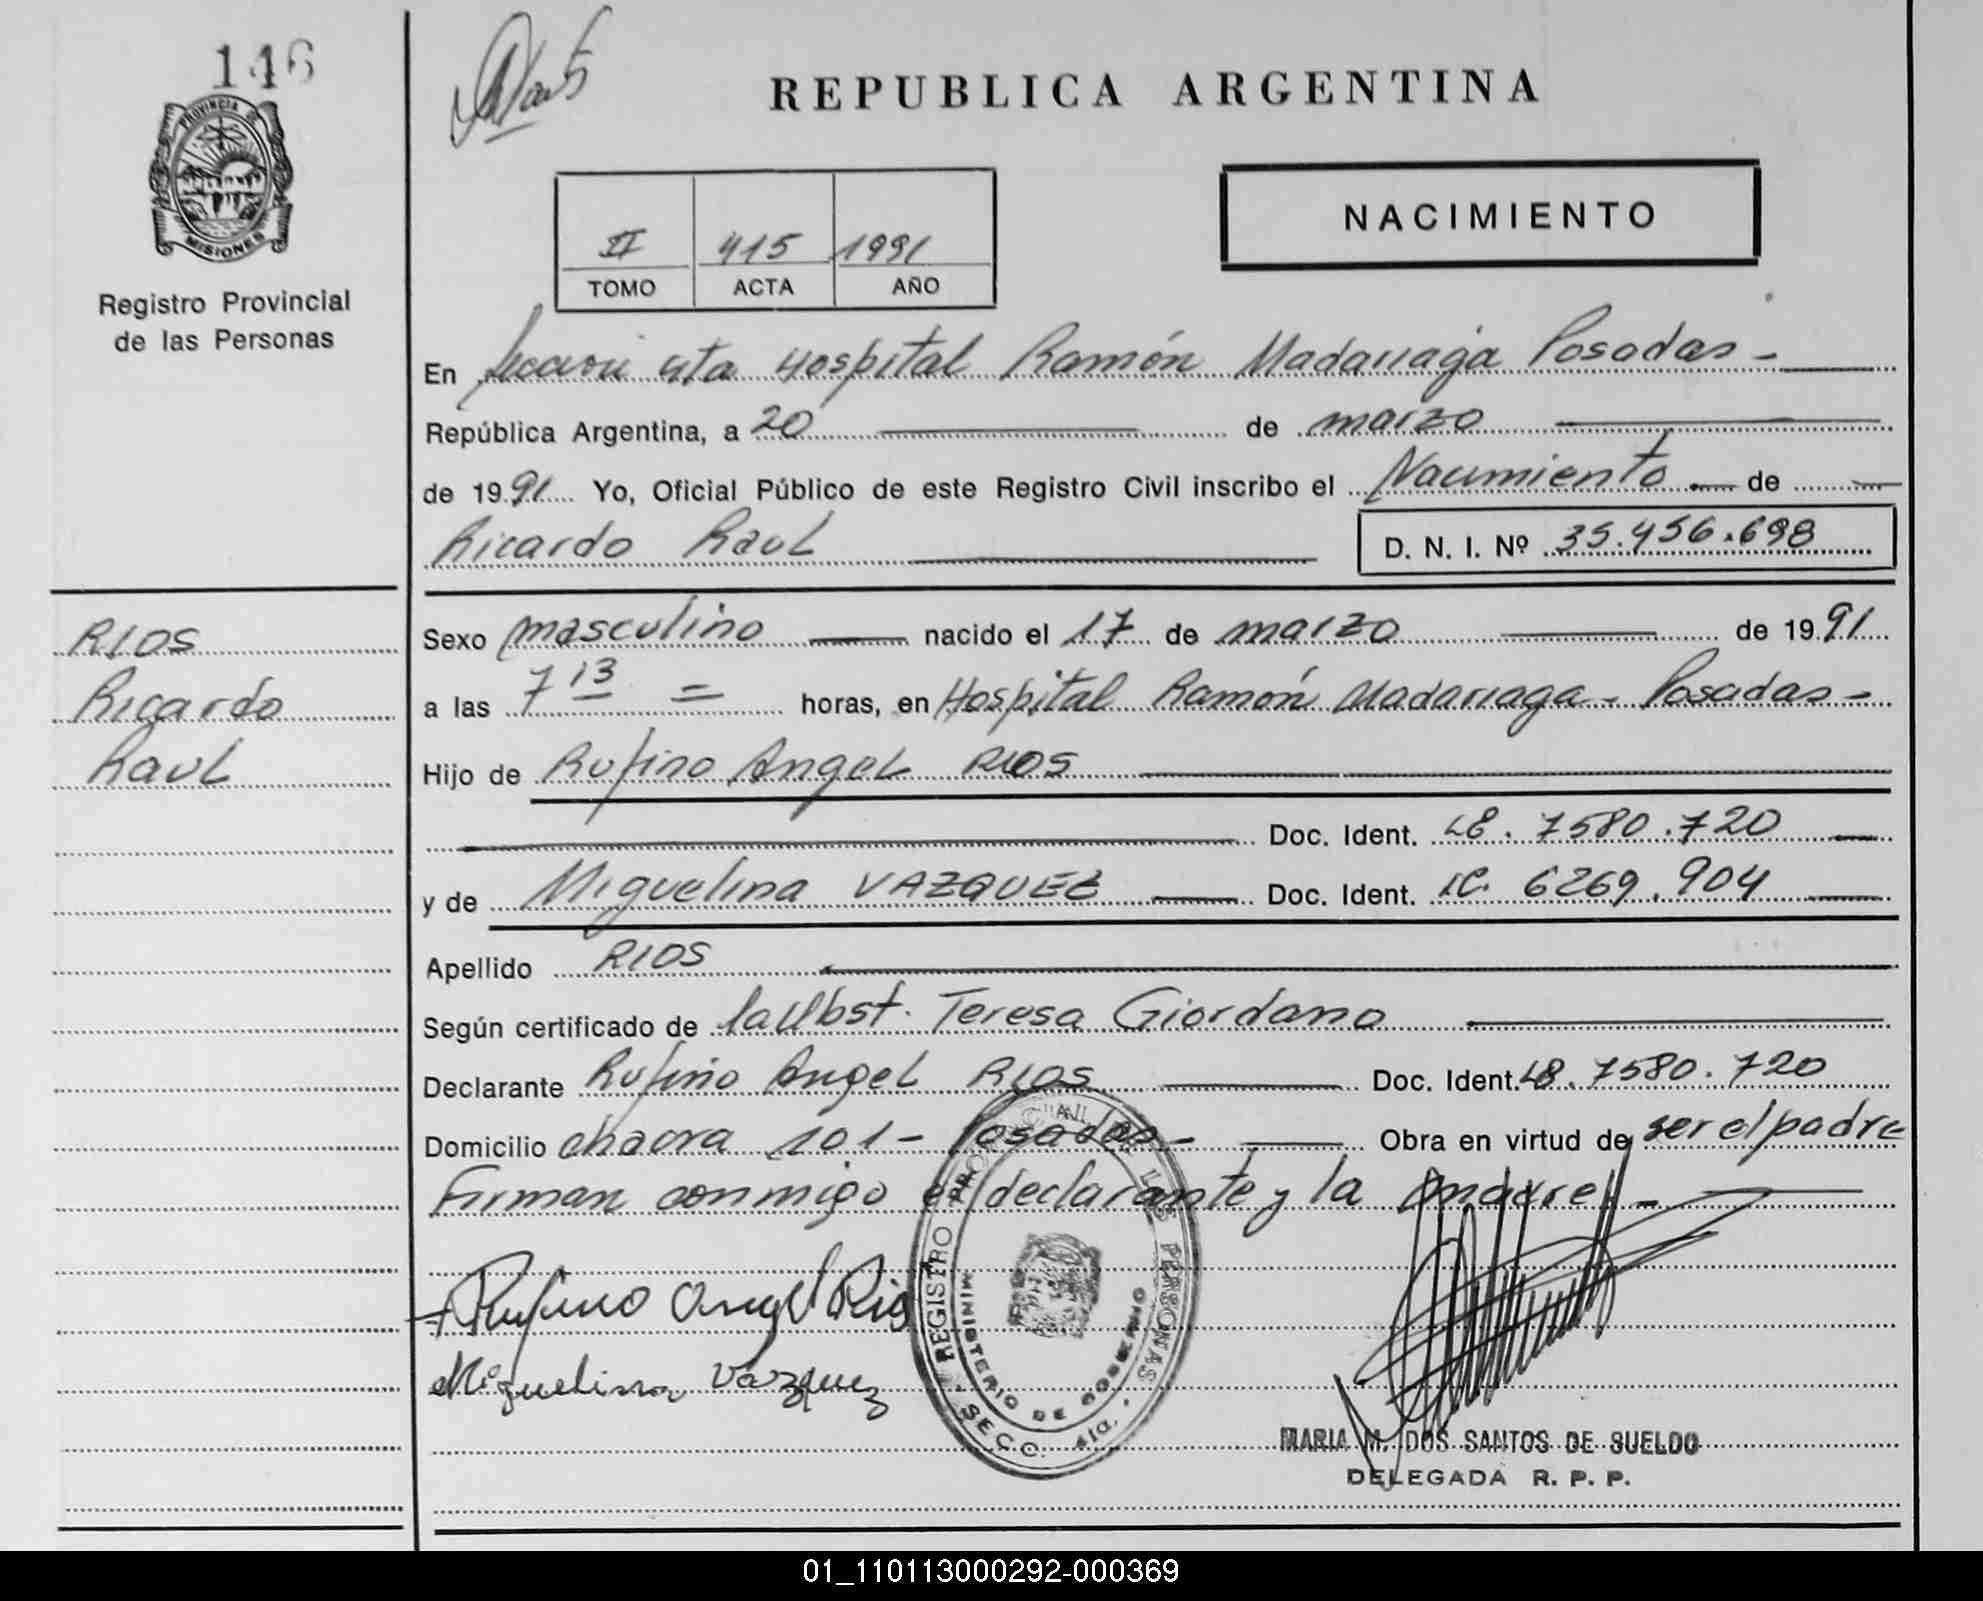 146
REPUBLICA ARGENTINA
PROVINCIA DE
MISIONES
Registro Provincial
de las Personas
NACIMIENTO
II 415 1991
TOMO ACTA AÑO
En Sección 4ta Hospital Ramón Madariaga Posadas -
República Argentina, a 20 de marzo
de 1991 Yo, Oficial Público de este Registro Civil inscribo el Nacimiento de
Ricardo Raul
D. N. I. Nº 35.456.698
RIOS
Ricardo
Raul
Sexo masculino nacido el 17 de marzo de 1991
a las 7 13 = horas, en Hospital Ramón Madariaga - Posadas -
Hijo de Rufino Angel RIOS
Doc. Ident. LE. 7580.720
y de Miguelina VAZQUEZ Doc. Ident. LC. 6269.904
Apellido RIOS
Según certificado de la Obst. Teresa Giordano
Declarante Rufino Angel RIOS Doc. Ident. LE. 7580.720
Domicilio chacra 101 - Posadas - Obra en virtud de ser el padre
Firman conmigo el declarante y la madre. -
Rufino Angel Rios
Miguelina Vazquez
REGISTRO PROVINCIAL DE LAS PERSONAS
MINISTERIO DE GOBIERNO
SECC. 4ta.
MARIA M. DOS SANTOS DE SUELDO
DELEGADA R. P. P.
01_110113000292-000369